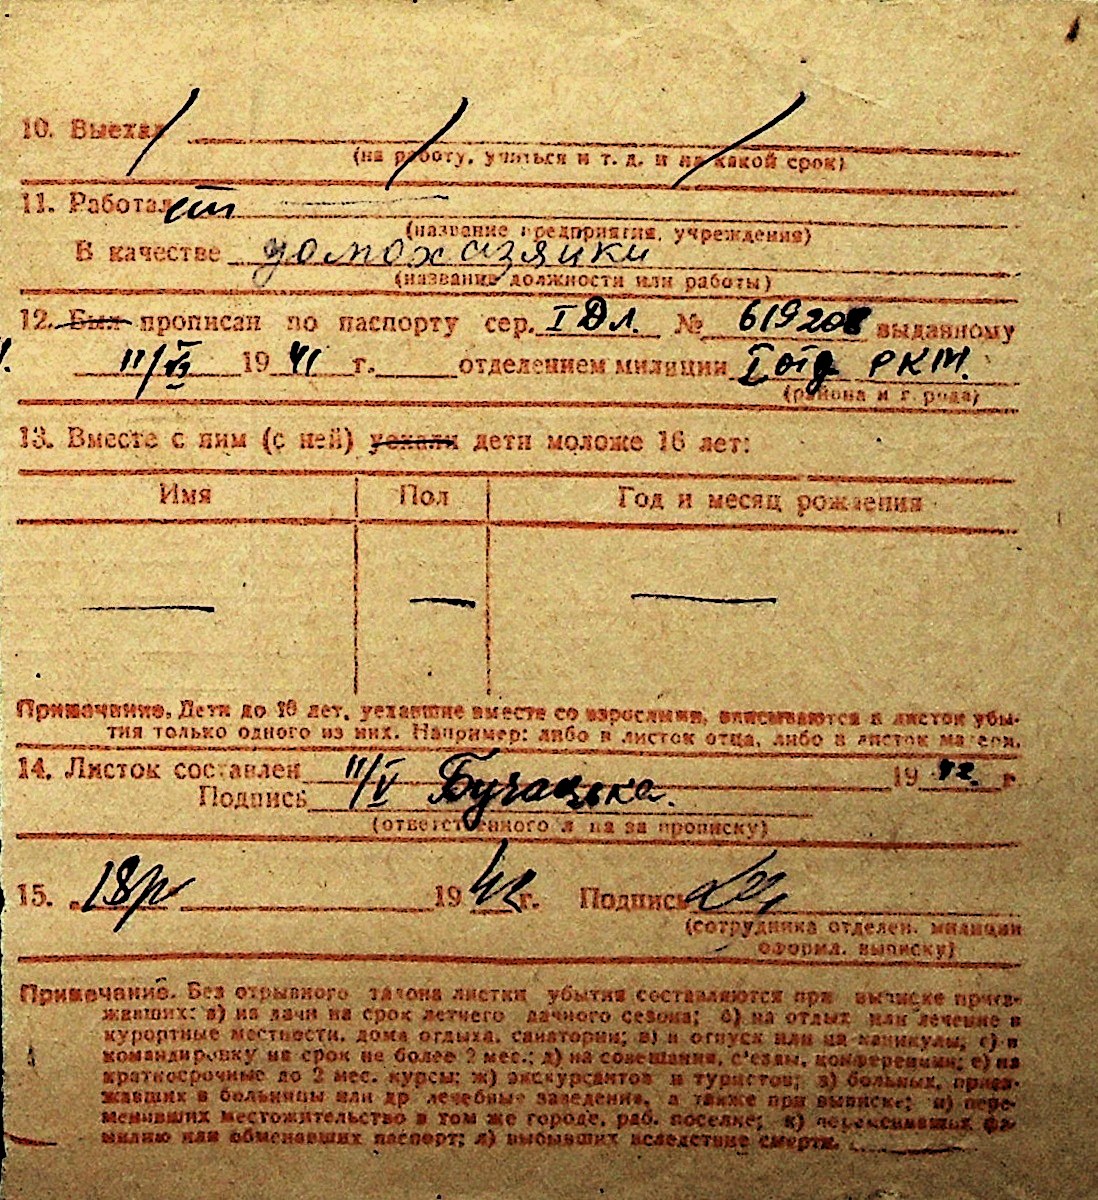 10. Выехал
(на работу, учиться и т. д. и на какой срок)
11. Работал
(название предприятия, учреждения)
В качестве домохазяики
(название должности или работы)
12. Был прописан по паспорту сер. I Дл. № 619208 выданному
11/VI 1941 г. отделением милиции I отд РКМ.
(района и города)
13. Вместе с ним (с ней) уехали дети моложе 16 лет:
Имя Пол Год и месяц рождения
— — —
Примечание. Дети до 16 лет, уехавшие вместе со взрослыми, вписываются в листок убы-
тия только одного из них. Например: либо в листок отца, либо в листок матери.
14. Листок составлен 11/V 1942 г.
Подпись
(ответственного лица за прописку)
15. „18 1942 г. Подпись
(сотрудника отделен. милиции
оформл. выписку)
Примечание. Без отрывного талона листки убытия составляются при выписке приез-
жавших: а) на дачи на срок летнего дачного сезона; б) на отдых или лечение в
курортные местности, дома отдыха, санатории; в) в отпуск или на каникулы, г) в
командировку на срок не более 2 мес.; д) на совещания, с'езды, конференции; е) на
краткосрочные до 2 мес. курсы; ж) экскурсантов и туристов; з) больных, приез-
жавших в больницы или др лечебные заведения, а также при выписке; и) пере-
менивших местожительство в том же городе, раб. поселке; к) переменивших фа-
милию или обменявших паспорт; л) выбывших вследствие смерти.